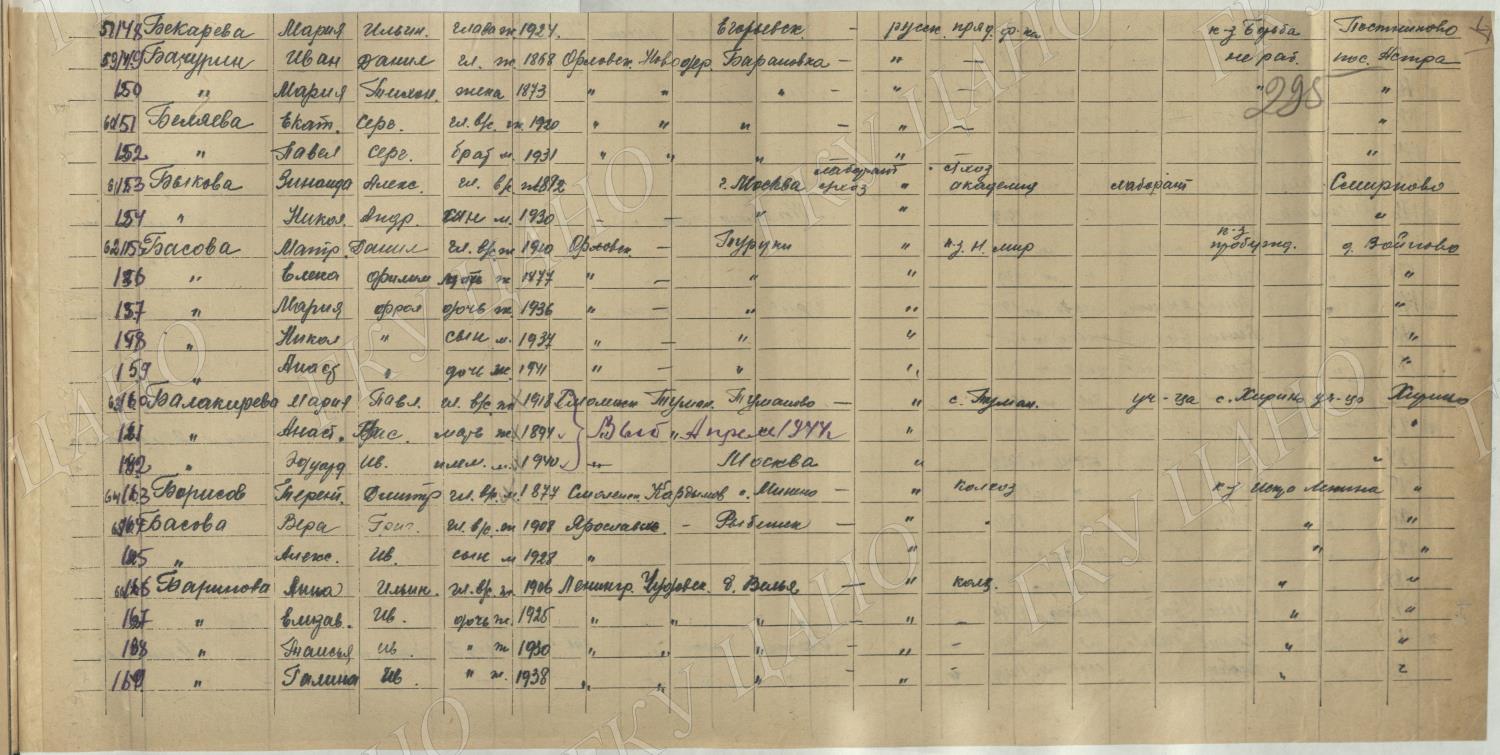 148 Бекарева Мария Ильин. глава ж. 1924. Егорьевск. — русск. пряд. ф-ка к-з Борьба Постниково
59 149 Бачурин Иван Данил гл. ж. 1868 Орловск. Новодер. Барановка — " — не раб. пос. Истра
150 " Мария Тихон. жена 1873 " " " — " — " "
295
151 Беляева Екат. Серг. гл. вр. ж. 1920 " " " — " — "
152 " Павел Серг. брат м. 1931 " " " " "
61 153 Быкова Зинаида Алекс. гл. вр. ж 1892 г. Москва лаборант с/хоз " с/хоз академия лаборант Смирново
154 " Никол. Андр. сын м. 1930 — — " " "
62 155 Басова Матр. Данил гл. вр. ж 1910 Орловск. — Туруки " к-з Н. мир к-з пробужд. д. Войново
156 " Елена Филип мать ж 1877 " — " " "
157 " Мария Фрол дочь ж. 1936 " — " " "
158 " Никол " сын м. 1937 " — " " "
159 " Анаст " дочь ж. 1941 " — " " "
63 160 Балакирева Мария Павл. гл. вр. ж 1918 Смоленск Туман. Туманово — " с. Туман. уч-ца с. Хирино уч-ца Хирино
161 " Анаст. мать ж 1894 Выб " Апреле 1944 " "
162 " Эдуард Ив. плем. м. 1940 " Москва " "
64 163 Борисов Терент. Дмитр гл. вр. м. 1877 Смоленск Кардымов с. Минино — " колхоз к-з Ленина "
164 Басова Вера Григ. гл. вр. ж 1908 Ярославск. — Рыбинск — " " " "
165 " Алекс. Ив. сын м 1928 " " " "
166 Баринова Анна Ильин. гл. вр. ж. 1906 Ленингр. Чудовск. д. Велья — " колх. " "
167 " Елизав. Ив. дочь ж. 1925 " " " — " — " "
168 " Таисья Ив. " ж 1930 " " " — " — " "
169 " Галина Ив. " ж. 1938 " " " — " — " "
ГКУ ЦАНО